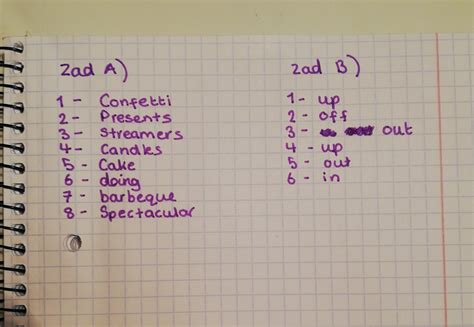 Zad A)
1 - Confetti
2 - Presents
3 - Streamers
4 - Candles
5 - Cake
6 - doing
7 - barbeque
8 - Spectacular
Zad B)
1 - up
2 - off
3 - out
4 - up
5 - out
6 - in